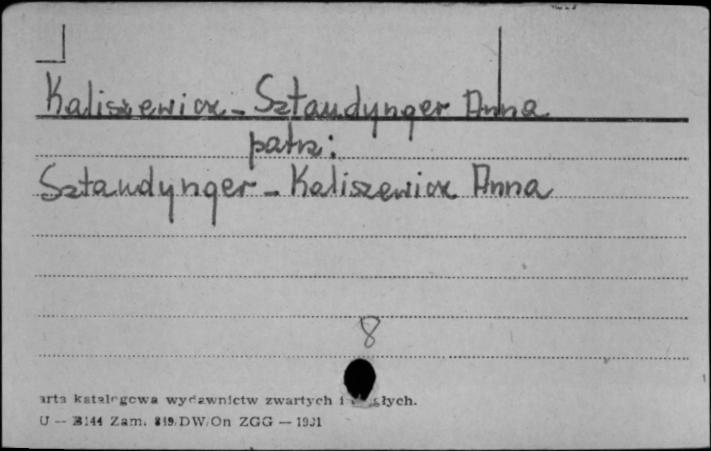 Kaliszewicz - Sztaudynger Anna
patrz:
Sztaudynger - Kaliszewicz Anna
8
arta katalogowa wydawnictw zwartych i głych.
U -- B144 Zam. 819/DW/On ZGG —